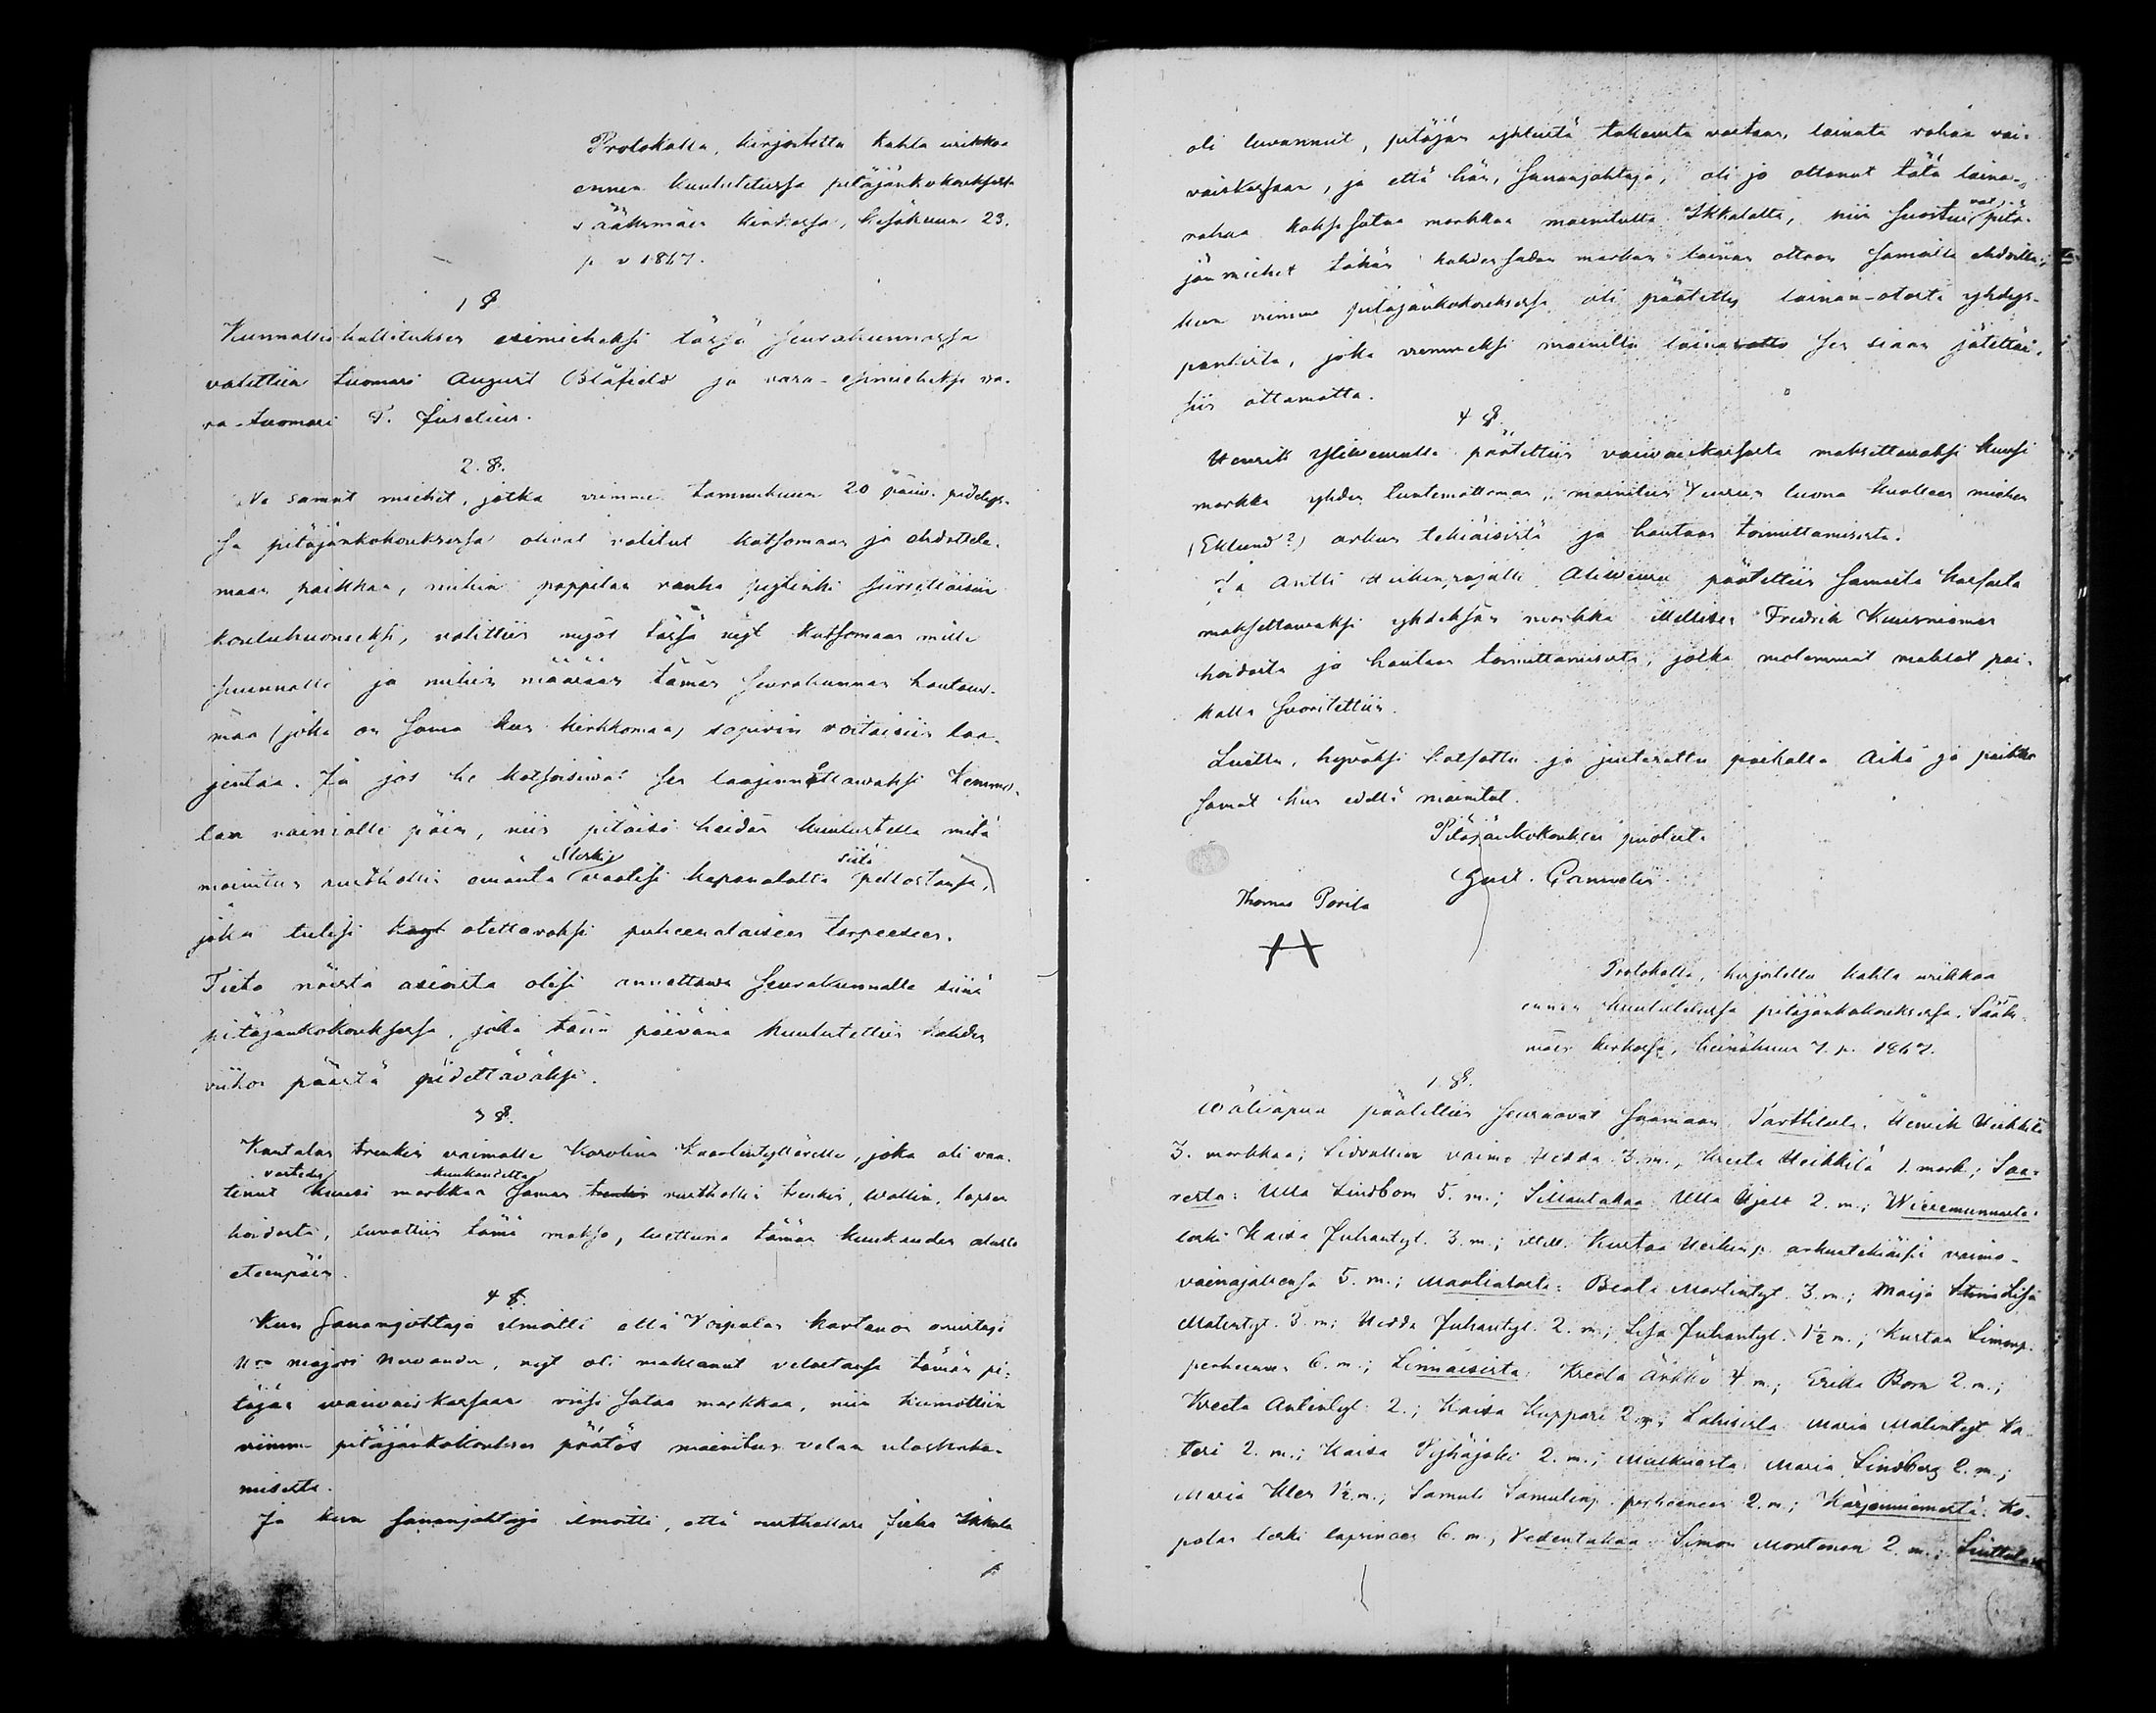 Protokolla, kirjoitettu kahta wiikkoa
ennen kuulutetussa pitäjänkokouksessa
Sääksmäen kirkossa, kesäkuun 23.
p v 1867.
1 §
Kunnallishallituksen esimieheksi tässä seurakunnassa
valittiin tuomari August Blåfield ja vara-esimieheksi va-
ra-tuomari P. Juselius.
2. §.
Ne samat miehet, jotka viimme tammikuun 20 päiv. pidetys-
sä pitäjänkokouksessa olivat valitut katsomaan ja ehdottele-
maan paikkaa, mihin pappilan vanha pytinki siirrettäisiin
kouluhuoneeksi, valittiin myös tässä nyt katsomaan mille
suunnalle ja mihin määrään tämän seurakunnan hautaus-
maa (joka on sama kun kirkkomaa) sopivin voitaisiin laa-
jentaa. Ja jos he katsoisivat sen laajennettavaksi Kemmo-
lan vainiolle päin, niin pitäisi heidän kuulustella mitä
mainitun rusthollin ománta vaatisi kapanalalta siitä pellostansa,
joka tulisi otettavaksi puheenalaiseen tarpeeseen.
Tieto näistä asioista olisi annettava seurakunnalle siinä
pitäjänkokouksessa, joka tänä päivänä kuulutettiin kahden
viikon päästä pidettäväksi.
3 §.
Kantalan trenkin vaimolle Karolina Kaarlentyttärelle, joka oli vaa-
vastedes kuukaudelta
tinut kuusi markkaa saman trenkin rusthollin trenkin, Wallin, lapsen
hoidosta, luvattiin tämä maksu, luettuna tämän kuukauden alusta
eteenpäin.
4 §.
Kun sananjohtaja ilmoitti että Voipalan kartanon omistaja
H:ra majori Nervander, nyt oli maksanut velastansa tämän pi-
täjän waivaiskassaan viisi sataa markkaa, niin kumottiin
viimme pitäjänkokouksen päätös mainitun velan uloshaka-
misesta.
Ja kun sananjohtaja ilmoitti, että rusthollari Juha Ikkala
oli luvannut, pitäjän yhteistä takausta vastaan, lainata rahaa vai-
vaiskassaan, ja että hän, sananjohtaja, oli jo ottanut tätä laina-
rahaa kaksi sataa markkaa mainitulta Ikkalalta, niin suostuivat pitä-
jän miehet tähän kahden sadan markan lainan ottoon samoilla ehdoilla,
kun viimme pitäjänkokouksessa oli päätetty lainan-otosta yhdys-
pankista, joka viimmeksi mainittu lainanotto sen siaan jätettäi-
siin ottamatta.
4 §.
Henrik Yliweuralle päätettiin vaivaiskassasta maksettavaksi kuusi
markka yhden tuntemattoman, mainitun Yweuran luona kuolleen miehen
(Eklund?) arkun tekiäisistä ja hautaan toimittamisesta.
Ja Antti Heikinpojalle Aliweura päätettiin samasta kassasta
maksettavaksi yhdeksän markka itellisen Fredrik Kuusniemen
hoidosta ja hautaan toimittamisesta, jotka molemmat maksot pai-
kalla suoritettiin.
Luettu, hyväksi katsottu ja juteerattu paikalla. Aika ja paikka
samat kun edellä mainitut.
Pitäjänkokouksen puolesta
Gust. Cannelin.
Thomas Parila
Protokolla, kirjoitettu kahta wiikkoa
ennen kuulutetussa pitäjänkokouksessa Sääks-
mäen kirkossa, heinäkuun 7. p. 1867.
1 §.
Wäliapua päätettiin seuraavat saamaan: Tarttilasta: Henrik Heikkilä
3. markkaa; Lidvallin vaimo Hedda 3. m., Kreeta Heikkilä 1. mark.; Saa-
resta: Ulla Lindbom 5. m.; Sillantakaa Ulla Hjelt 2. m.; Wieremunnasta:
leski Kaisa Juhantyt. 3. m.; itell. Kustaa Heikinp. arkuntekiäisiä vaimo-
vainajallensa 5. m.; Maatialasta: Beata Martintyt. 3. m.; Maija Stina Lisa
Matintyt. 3. m; Hedda Juhantyt. 2. m.; Lisa Juhantyt. 1½ m.; Kustaa Simonp.
perheensä 6. m.; Linnaisista: Kreeta Ärkkö 4 m.; Erika Born 2. m.;
Kreeta Antintyt 2.; Kaisa Kuppari 2 m.; Lahisista Maria Matintyt Ka-
teri 2. m.; Kaisa Pyhäjoki 2. m.; Muikuista: Maria Lindberg 2. m.;
Maria Kler 1½ m.; Samuli Samulinp. perheensä 2. m.; Karjanniemestä: Ka-
palan leski lapsinensa 6. m.; Vedentakaa Simon Montonen 2. m.; Liuttulasta